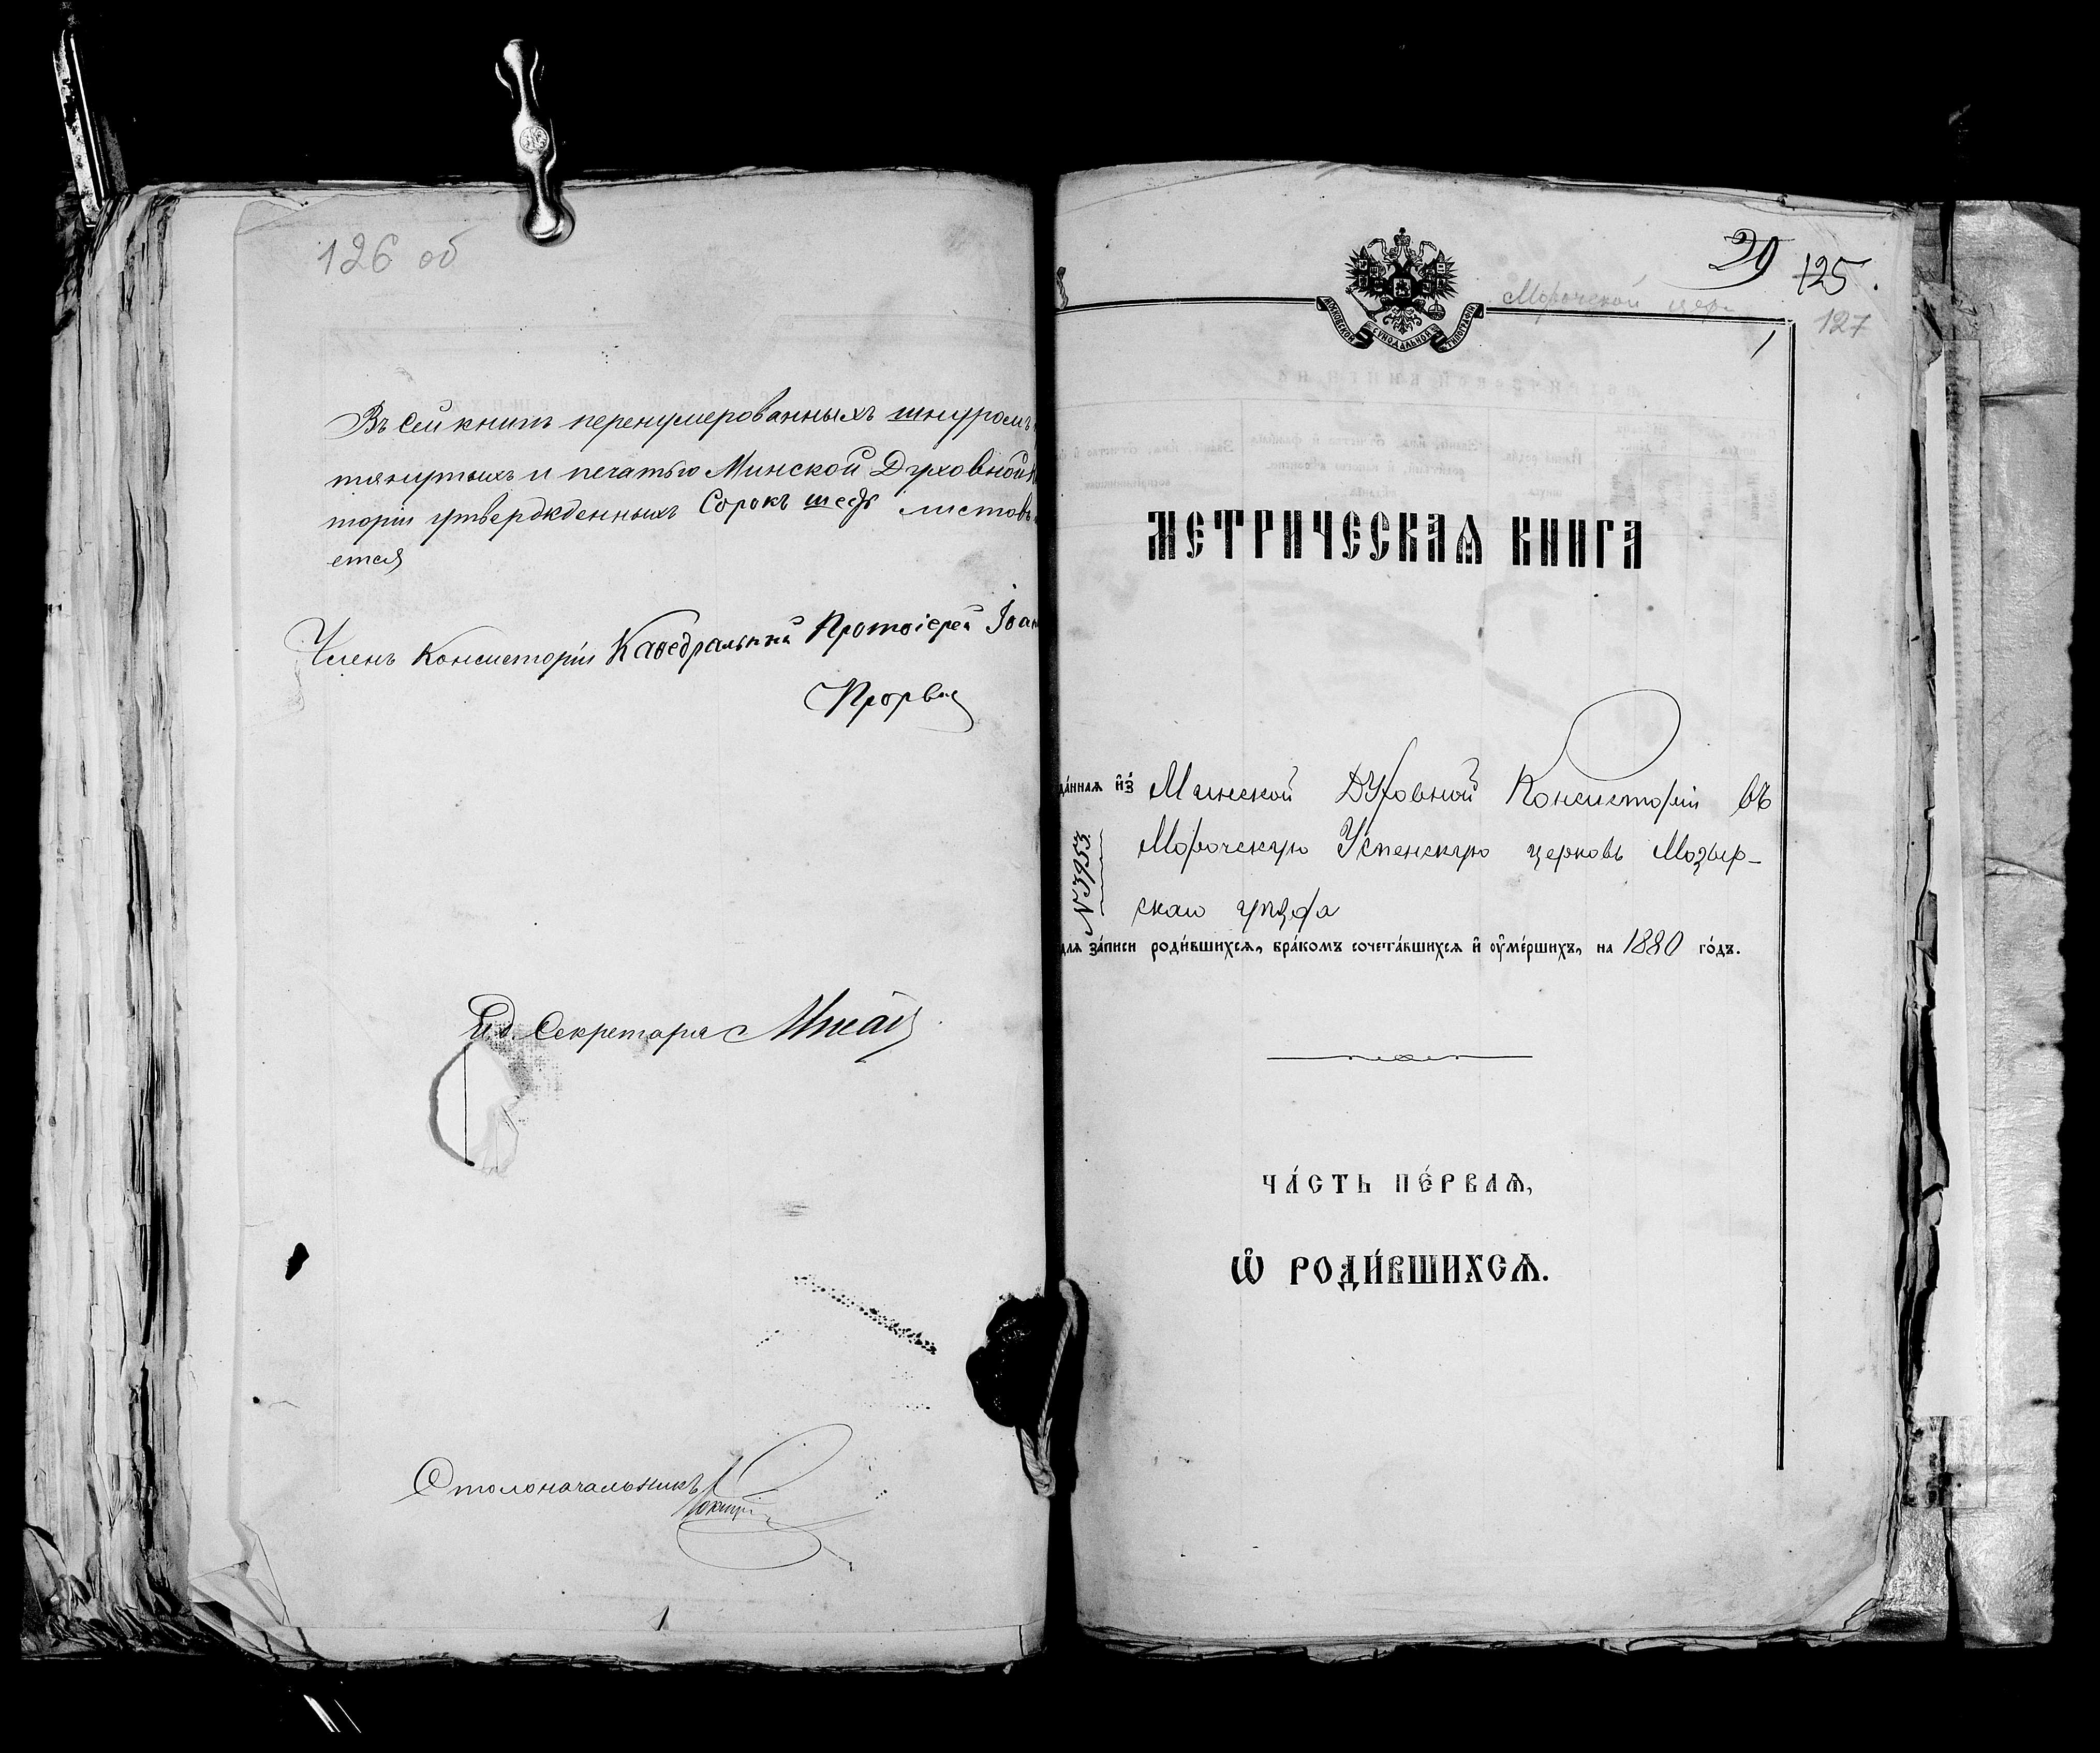 126 об
Въ сей книгѣ перенумерованныхъ шнуромъ
тянутыхъ и печатью Минской Духовной
торіи утвержденныхъ Сорокъ шесть листовъ
ется
Членъ Консисторіи Каѳедральный Протоіерей Іоан
И.д. Секретаря
Столоначальникъ
1
29
125.
127
МОСКОВСКОЙ СУНОДАЛЬНОЙ ТИПОГРАФІИ
Морочской цер.
МЕТРИЧЕСКАѦ КНИГА
да́нная и҆з̾ Минской Духовной Консисторіи въ
Морочскую Успенскую церковь Мозыр-
скаго уѣзда
№ 3953.
для за́писи роди́вшихсѧ, бра́комъ сочета́вшихсѧ и҆ ѹ҆ме́ршихъ, на 1880 го́дъ.
ЧА́СТЬ ПЕ́РВАѦ,
Ѽ РОДИ́ВШИХСѦ.